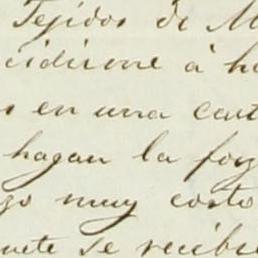 Tejidos de M
cidirme á ha
s en una cart
hagan la forz
go muy corto
uete se recibi